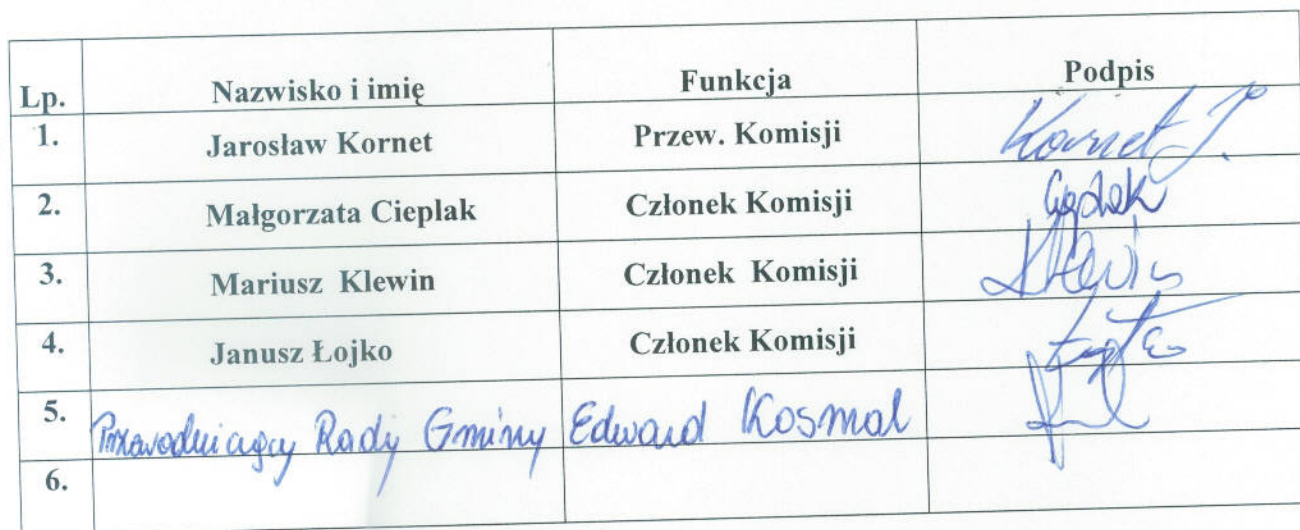 Lp. Nazwisko i imię Funkcja Podpis
1. Jarosław Kornet Przew. Komisji Kornet J.
2. Małgorzata Cieplak Członek Komisji
3. Mariusz Klewin Członek Komisji Klewin
4. Janusz Łojko Członek Komisji
5. Przewodniczący Rady Gminy Edward Kosmal
6.